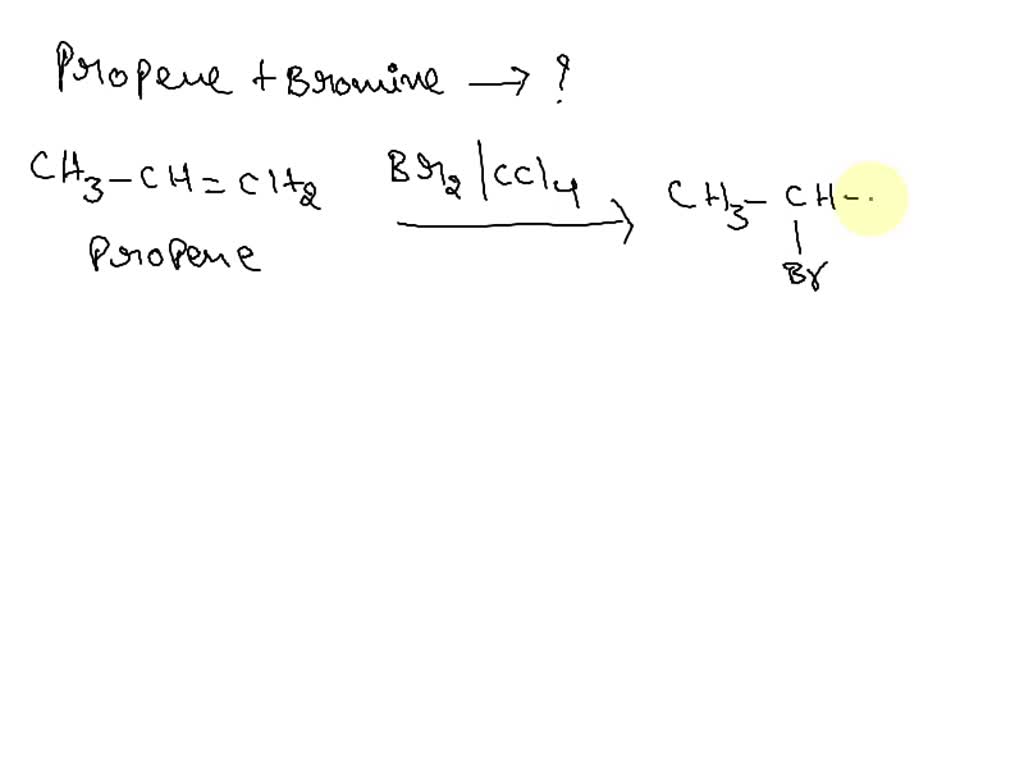 Propene + Bromine → ?
CH3-CH=CH2 Br2/CCl4 → CH3-CH-
Propene Br